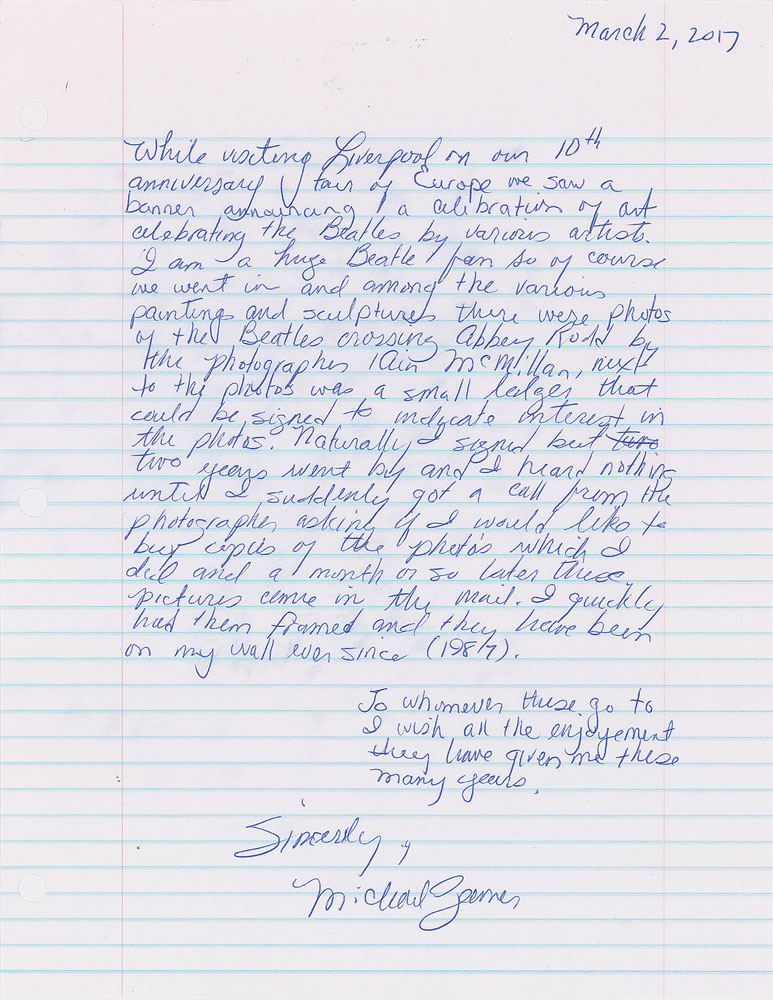 March 2, 2017
While visiting Liverpool on our 10th
anniversary tour of Europe we saw a
banner announcing a celibration of art
celebrating the Beatles by various artists.
I am a huge Beatle fan so of course
we went in and among the various
paintings and sculptures there were photos
of the Beatles crossing Abbey Road by
the photographer Iain McMillan, next
to the photos was a small ledger that
could be signed to indycate interest in
the photos. Naturally I signed but two
two years went by and I heard nothing
until I suddenly got a call from the
photographer asking if I would like to
buy copies of the photo's which I
did and a month or so later these
pictures came in the mail. I quickly
had them framed and they have been
on my wall ever since (1987).
To whomever these go to
I wish all the enjoyement
they have given me these
many years.
Sincerely,
Michael